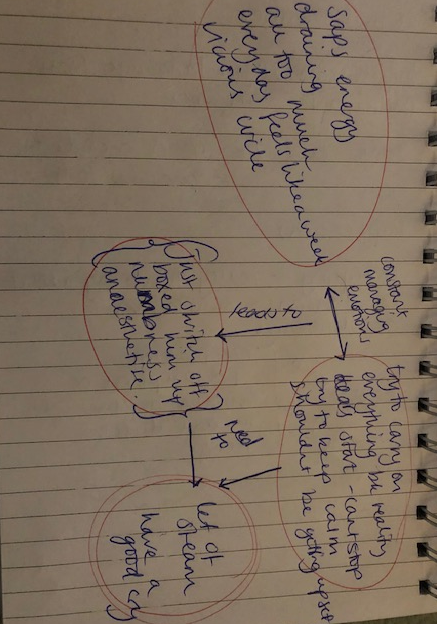 Saps energy
draining
all too much
everyday feels like a week
vicious circle
constant
managing
emotions
leads to
try to carry on
everything be
reality
start - can't stop
try to keep calm
shouldn't be getting upset
Just switch off
boxed him up
numbness
anaesthetise.
need
to
let of
steam
have a
good cry